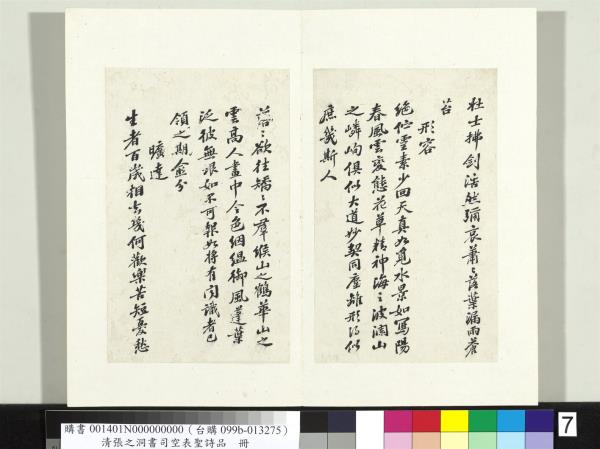 壯士拂劍浩然彌哀蕭〻落葉漏雨蒼
苔
形容
絕佇靈素少回天真如覓水景如寫陽
春風雲變態花草精神海〻波瀾山
之嶙峋俱似大道妙契同塵離形得似
庶幾斯人
落〻欲往矯〻不羣緱山之鶴華山之
雲高人畫中令色絪縕御風蓬葉
泛彼無垠如不可執如將有聞識者已
領之期愈分
曠達
生者百歲相去幾何歡樂苦短憂愁
購書 001401N000000000（台購 099b-013275）
清張之洞書司空表聖詩品 冊
7